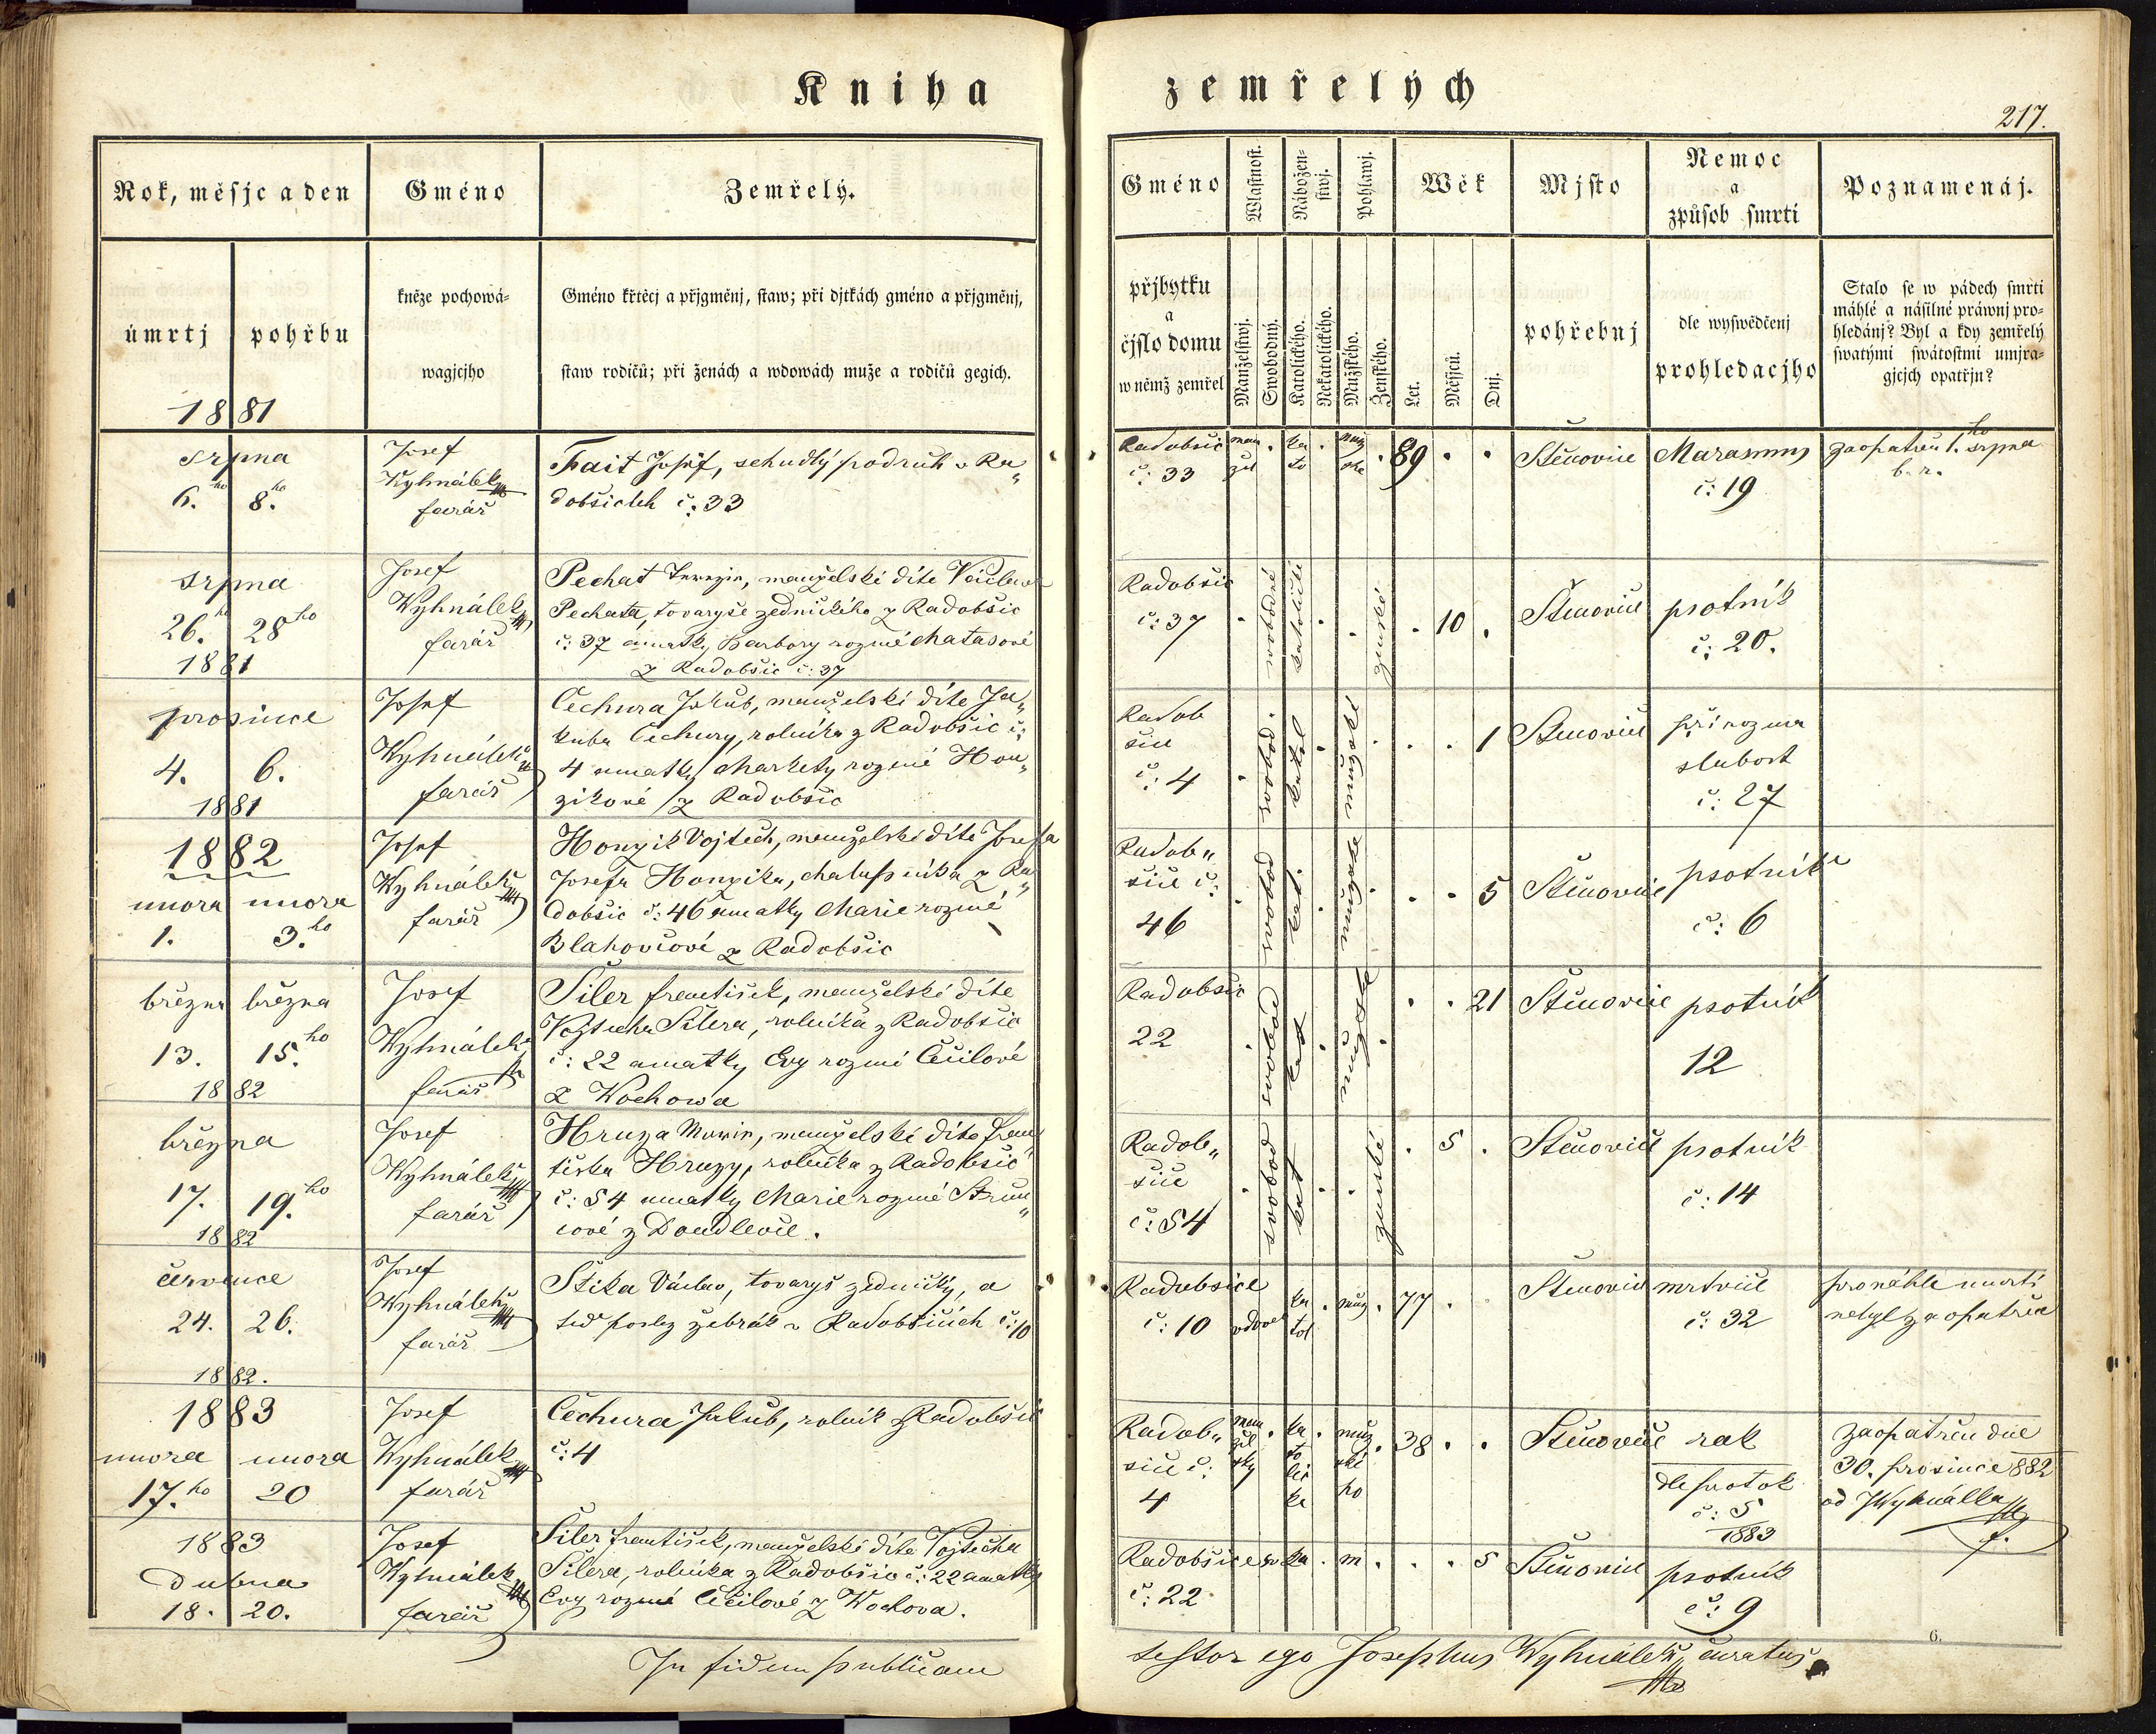 Kniha zemřelých
217.
Rok, měsjc a den
Gméno
Zemřelý.
Gméno
Wlastnost.
Nábožen-
stwj.
Pohlawj.
Wěk
Mjsto
Nemoc
a
způsob smrti
Poznamenáj.
úmrtj
pohřbu
kněze pochowá-
wagjcjho
Gméno křtěcj a přjgměnj, staw; při djtkách gméno a přjgměnj,
staw rodičů; při ženách a wdowách muže a rodičů gegich.
přjbytku
a
čjslo domu
w němž zemřel
Manželstwj.
Swobodný.
Katolického.
Nekatolického.
Mužského.
Ženského.
Let.
Měsjců.
Dnj.
pohřebnj
dle wyswědčenj
prohledacjho
Stalo se w pádech smrti
náhlé a násilné práwnj pro-
hledánj? Byl a kdy zemřelý
swatými swátostmi umjra-
gjcjch opatřjn?
1881
srpna
6. ho 8. ho
Josef
Wyhnálek
farář
Fait Josef, schudlý podruh v Ra„
dobšicích č: 33
Radobšic
č: 33
man
žel
ka
to
muž
ské
89
Štěnovice
Marasmus
č: 19
zaopatřen 1. ho srpna
b. r.
srpna
26. ho 28 ho
1881
Josef
Wyhnálek
farář
Pechat Terezie, manželské díte Václava
Pechata, tovaryše zednického z Radobšic
č: 37 a matky Barbory rozené Matasové
z Radobšic č: 37
Radobšic
č: 37
svobodné
katolické
ženské
10
Štěnovice
psotník
č: 20.
prosince
4. 6.
1881
Josef
Wyhnálek
farář
Čechura Jakub, manželské díte Ja„
kuba Čechury, rolníka z Radobšic č:
4 a matky Markety rozené Hon„
zikové z Radobšic
Radob
šice
č: 4
svobod.
katol
mužské
1
Štěnovice
přirozena
slabost
č: 27
1882
unora unora
1. 3. ho
Josef
Wyhnálek
farář
Honzik Vojtěch, manželské díte Josefa
Josefa Honzika, chalupníka z Ra„
dobšic č: 46 a matky Marie rozené
Blahovcové z Radobšic
Radob„
šice č:
46
svobod
kat.
mužské
5
Štěnovice
psotník
č: 6
března března
13. 15. ho
1882
Josef
Wyhnálek
farář
Šiler František, manželské díte
Vojtěcha Šilera, rolníka z Radobšic
č: 22 a matky Evy rozené Čečilové
z Wochowa
Radobšic
22
svobod
kat
mužské
21
Štěnovice
psotník
12
března
17. 19. ho
1882
Josef
Wyhnálek
farář
Hruza Marie, manželské díte Fran
tiška Hruzy, rolníka z Radobšic
č: 54 a matky Marie rozené Strun„
cové z Doudlevic.
Radob„
šice
č: 54
svobod
kat
ženské
5
Štěnovice
psotník
č: 14
července
24. 26.
1882.
Josef
Wyhnálek
farář
Štika Václav, tovaryš zednický, a
teď posléz žebrák v Radobšicích č: 10
Radobšice
č: 10
vdovec
ka
tol
muž
77
Štěnovice
mrtvice
č: 32
pro náhlé umrtí
nebyl zaopatřen
1883
unora unora
17. ho 20
Josef
Wyhnálek
farář
Čechura Jakub, rolník z Radobšic
č: 4
Radob„
šice č:
4
man
žel
ský
ka
to
lic
ké
muž
ské
ho
38
Štěnovice
rak
dle protok
č: 5
1883
zaopatřen dne
30. prosince 882
od JWyhnálka
f.
1883
dubna
18. 20.
Josef
Wyhnálek
farář
Šiler František, manželské díte Vojtěcha
Šilera, rolníka z Radobšic č: 22 a matky
Evy rozené Čečilové z Wochova.
Radobšice
č: 22
sv
ka
m
5
Štěnovice
psotník
č: 9
6.
In fidem publicam
testor ego Josephus Wyhnálek, curatus